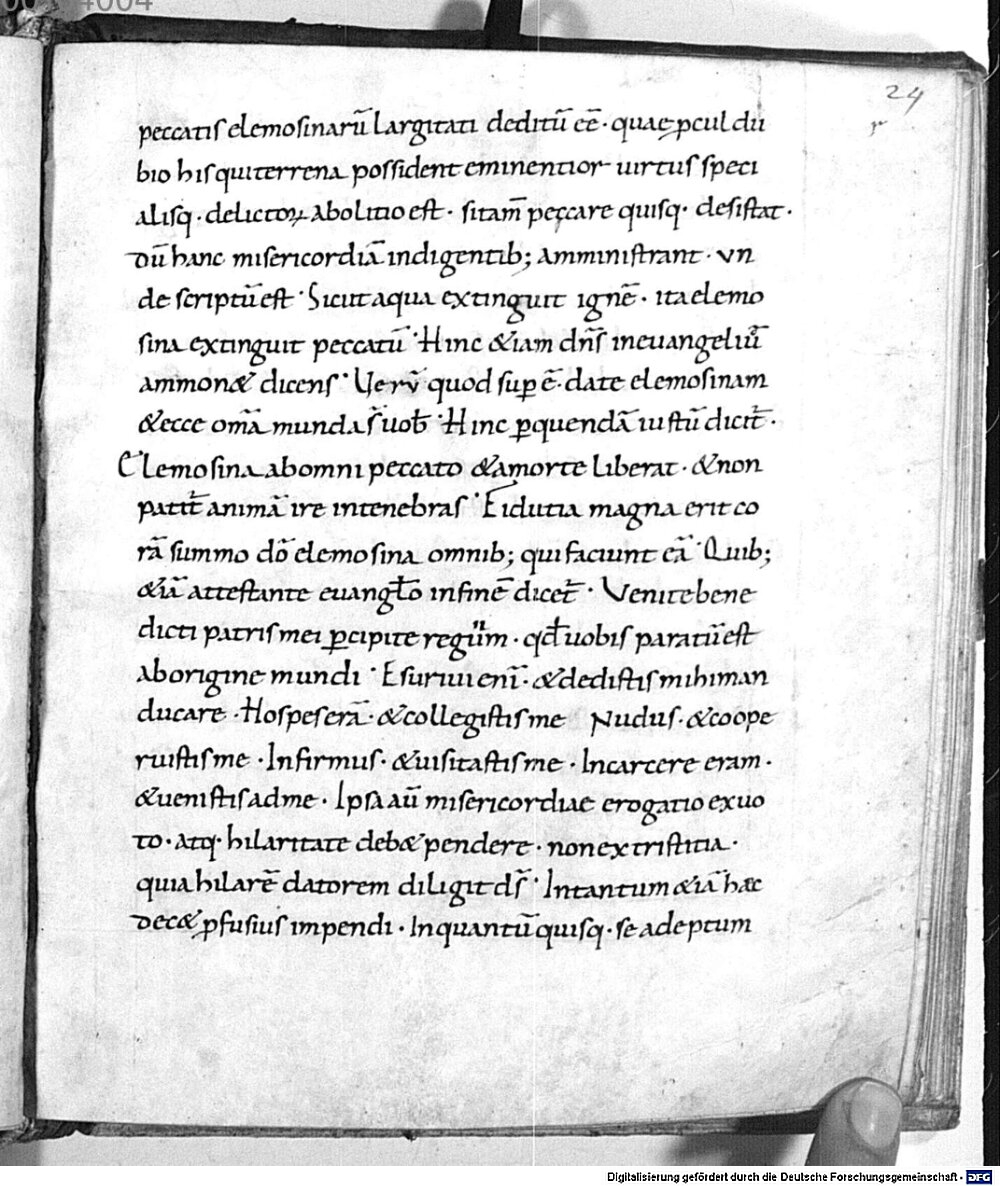 24
r
peccatis elemosinarū largitati deditū eē · quae ꝓcul du
bio his qui terrena possident eminentior uirtus speci
alisq · delictoꝝ abolitio est · si tam̄ peccare quisq · desistat ·
Dū hanc misericordiā indigentib; amministrant · vn
de scriptū est · Sicut aqua extinguit ignē · ita elemo
sina extinguit peccatū · Hinc &iam dn̄s in euangeliū
ammon& dicens · Uerū quod sup ē · date elemosinam
& ecce om̄a munda s̄ uob̄ · Hinc ꝑ quendā iustū dicit̄ ·
Elemosina ab omni peccato & a morte liberat · & non
patit̄ animā ire in tenebras · Fidutia magna erit co
rā summo dō elemosina omnib; qui faciunt eā · Quib;
&iā attestante euangl̄o in fine dicet̄ · Venite bene
dicti patris mei ꝑcipite regnum · qd̄ uobis paratū est
ab origine mundi · Esuriui enī · & dedistis mihi man
ducare · Hospes erā · & collegistis me Nudus · & coope
ruistis me · Infirmus · & uisitastis me · In carcere eram ·
& uenistis ad me · Ipsa aū misericordiae erogatio ex uo
to · atq · hilaritate deb& pendere · non ex tristitia ·
quia hilarē datorem diligit ds̄ · In tantum &iā haec
Dec& ꝓfusius impendi · In quantū quisq · se adeptum
Digitalisierung gefördert durch die Deutsche Forschungsgemeinschaft - DFG